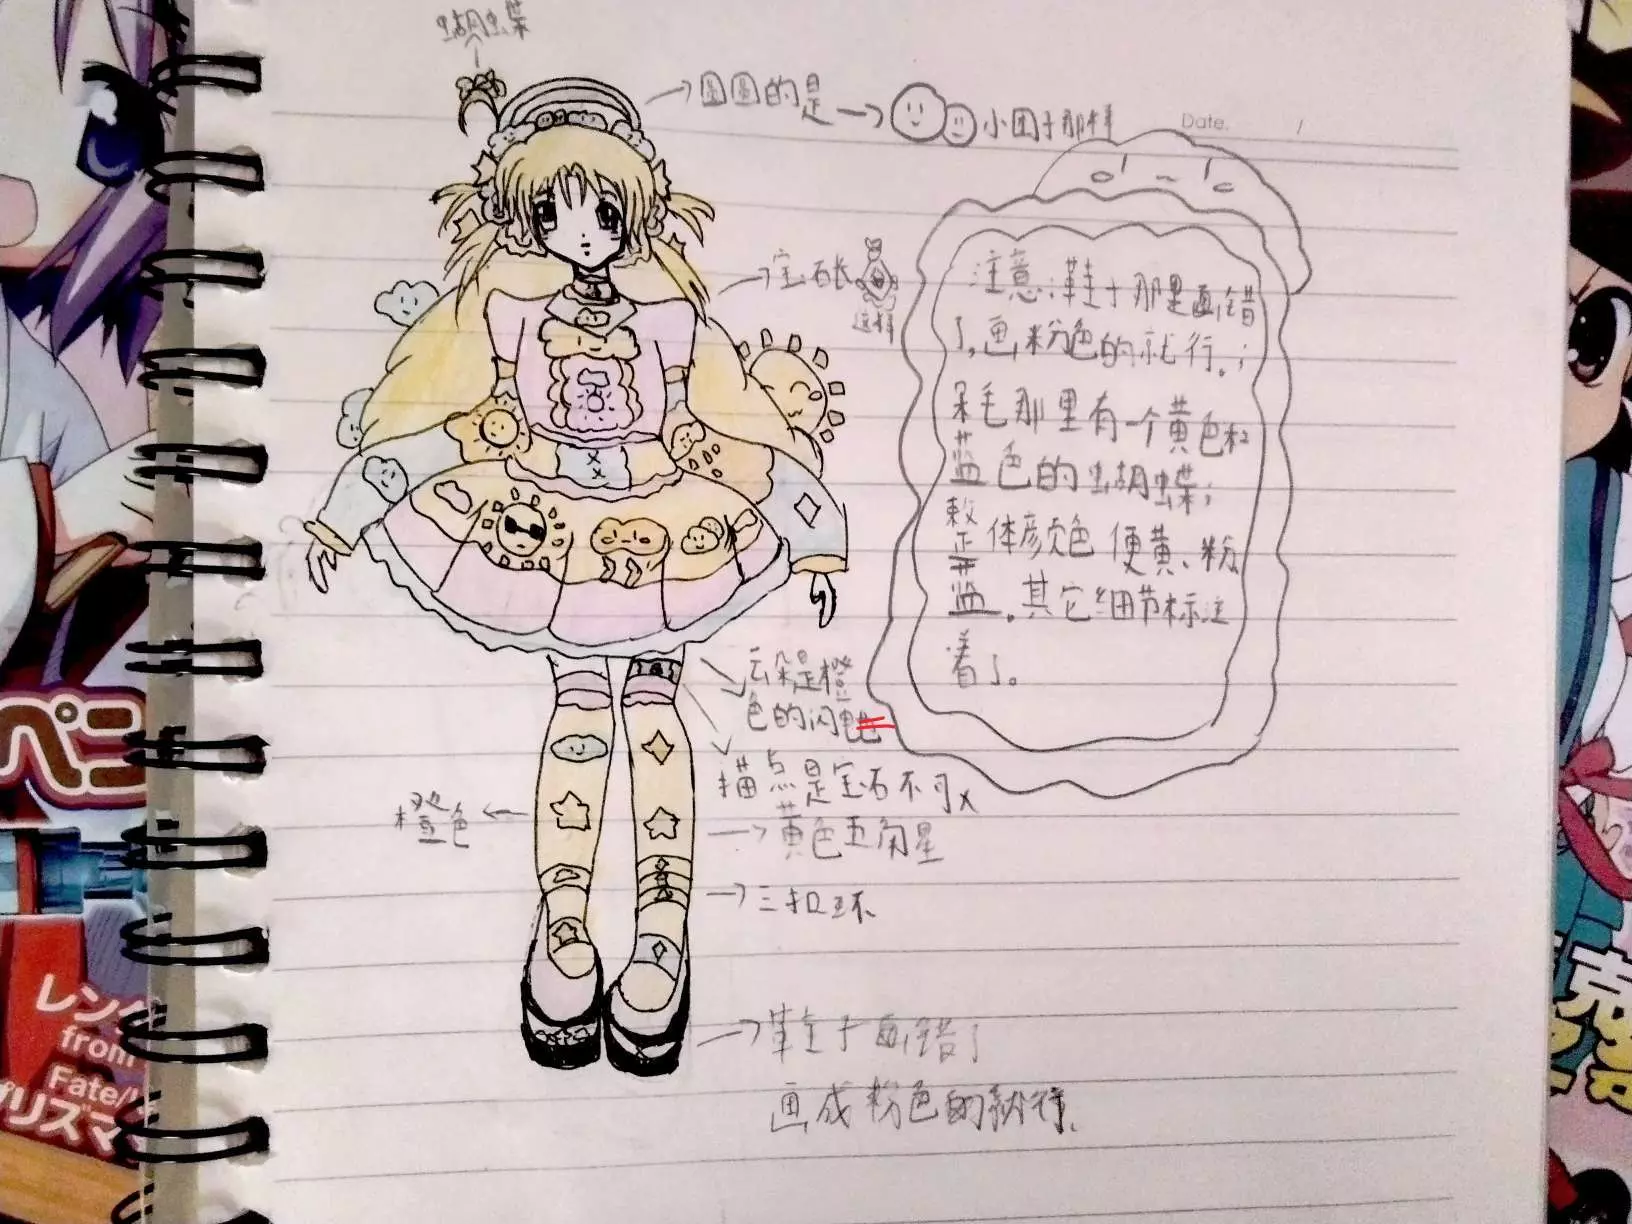 蝴蝶
圆圆的是
小团子那样
Date. /
宝石长
这样
注意：鞋子那里画错
了，画粉色的就行。；
呆毛那里有一个黄色和
蓝色的蝴蝶；
整体颜色便黄、粉
蓝。其它细节标注
着了。
云朵是橙
色的闪电也
描点是宝石不可x
橙色
黄色五角星
三扣环
鞋子画错了
画成粉色的就行.
ペニ
レン
from
Fate/
プリズマ
克